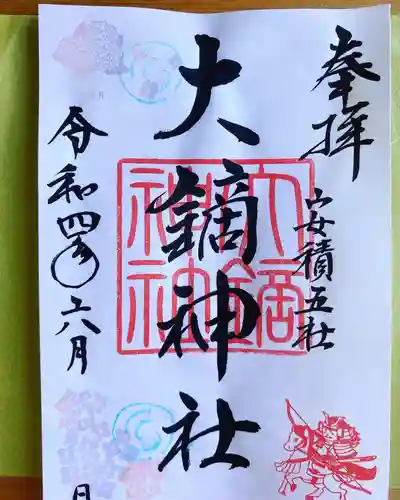 奉拝
安積五社
大鏑神社
大鏑神社
令和四年六月
日